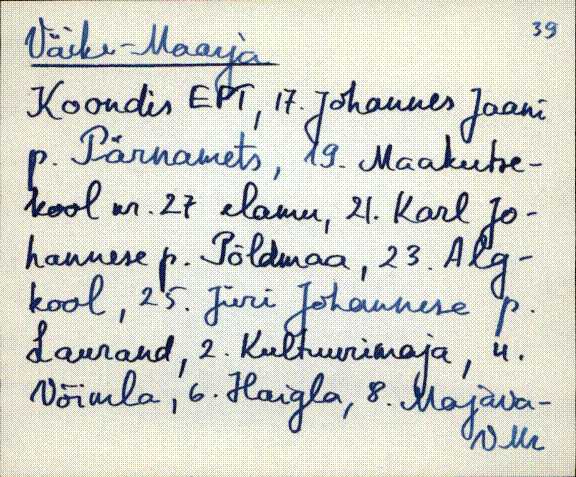 39
Väike-Maarja
Koondis EPT, 17. Johannes Jaani
p. Pärnamets, 19. Maakutse-
kool nr. 27 elamu, 21. Karl Jo-
hannese p. Põldmaa, 23. Alg-
kool, 25. Jüri Johannese p.
Laurand, 2. Kultuurimaja, 4.
Võimla, 6. Haigla, 8. Majava-
VMr